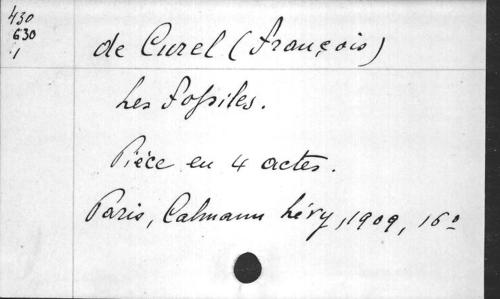 430
630
1
de Curel (François)
Les Fossiles.
Pièce en 4 actes.
Paris, Calmann Lévy, 1909, 16º